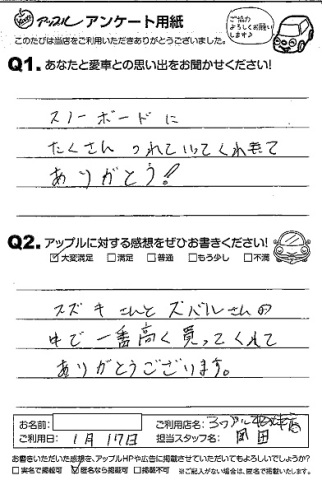 アップル アンケート用紙
このたびは当店をご利用いただきありがとうございました。
ご協力
よろしくお願い
します♪
Q1. あなたと愛車との思い出をお聞かせください!
スノーボードに
たくさん つれていってくれて
ありがとう!
Q2. アップルに対する感想をぜひお書きください!
☑大変満足 □満足 □普通 □もう少し □不満
スズキさんとスバルさんの
中で一番高く買ってくれて
ありがとうございます。
お名前:
ご利用店名: アップル
ご利用日: 1月17日
担当スタッフ名: 岡田
お書きいただいた感想を、アップルHPや広告に掲載させていただいてもよろしいでしょうか?
□実名で掲載可 ☑匿名なら掲載可 □掲載不可 ※ご記入がない場合は、匿名で掲載いたします。